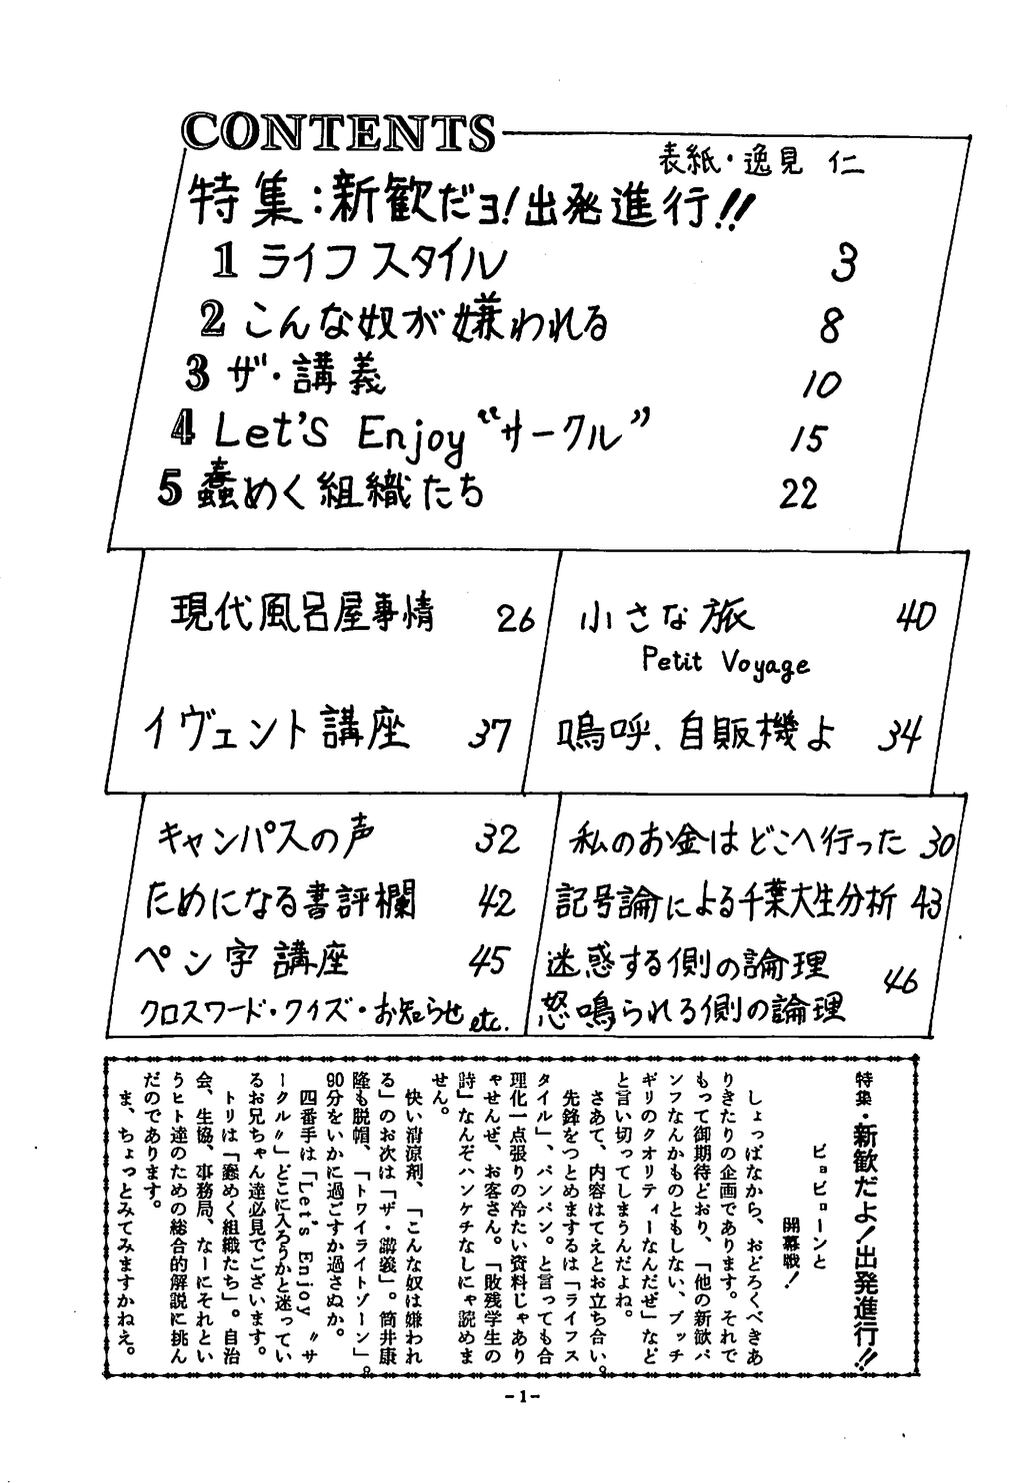 CONTENTS
表紙・逸見 仁
特集:新歓だヨ!出発進行!!
1 ライフスタイル 3
2 こんな奴が嫌われる 8
3 ザ・講義 10
4 Let's Enjoy “サークル” 15
5 蠢めく組織たち 22
現代風呂屋事情 26
イヴェント講座 37
小さな旅 40
Petit Voyage
嗚呼、自販機よ 34
キャンパスの声 32
ためになる書評欄 42
ペン字講座 45
クロスワード・クイズ・お知らせ etc.
私のお金はどこへ行った 30
記号論による千葉大生分析 43
迷惑する側の論理
怒鳴られる側の論理 46
特集・新歓だよ!出発進行!!
ピョピョーンと
開幕戦!
しょっぱなから、おどろくべきあ
りきたりの企画であります。それで
もって御期待どおり、「他の新歓パ
ンフなんかものともしない、ブッチ
ギリのクオリティーなんだぜ」など
と言い切ってしまうんだよね。
さあて、内容はてえとお立ち合い。
先鋒をつとめまするは「ライフス
タイル」、パンパン。と言っても合
理化一点張りの冷たい資料じゃあり
ゃせんぜ、お客さん。「敗残学生の
詩」なんぞハンケチなしにゃ読めま
せん。
快い清涼剤、「こんな奴は嫌われ
る」のお次は「ザ・講義」。筒井康
隆も脱帽、「トワイライトゾーン」。
90分をいかに過ごすか過さぬか。
四番手は「Let's Enjoy 〝サ
ークル〟」どこに入ろうかと迷ってい
るお兄ちゃん達必見でございます。
トリは「蠢めく組織たち」。自治
会、生協、事務局、なーにそれとい
うヒト達のための総合的解説に挑ん
だのであります。
ま、ちょっとみてみますかねえ。
-1-